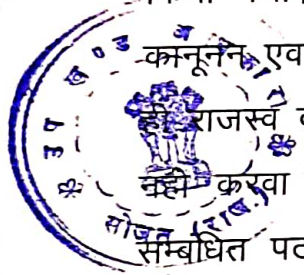 कानूनन एव
ही राजस्व
नही करवा
सम्बंधित पट
उप खण्ड
सोजत (राज.)